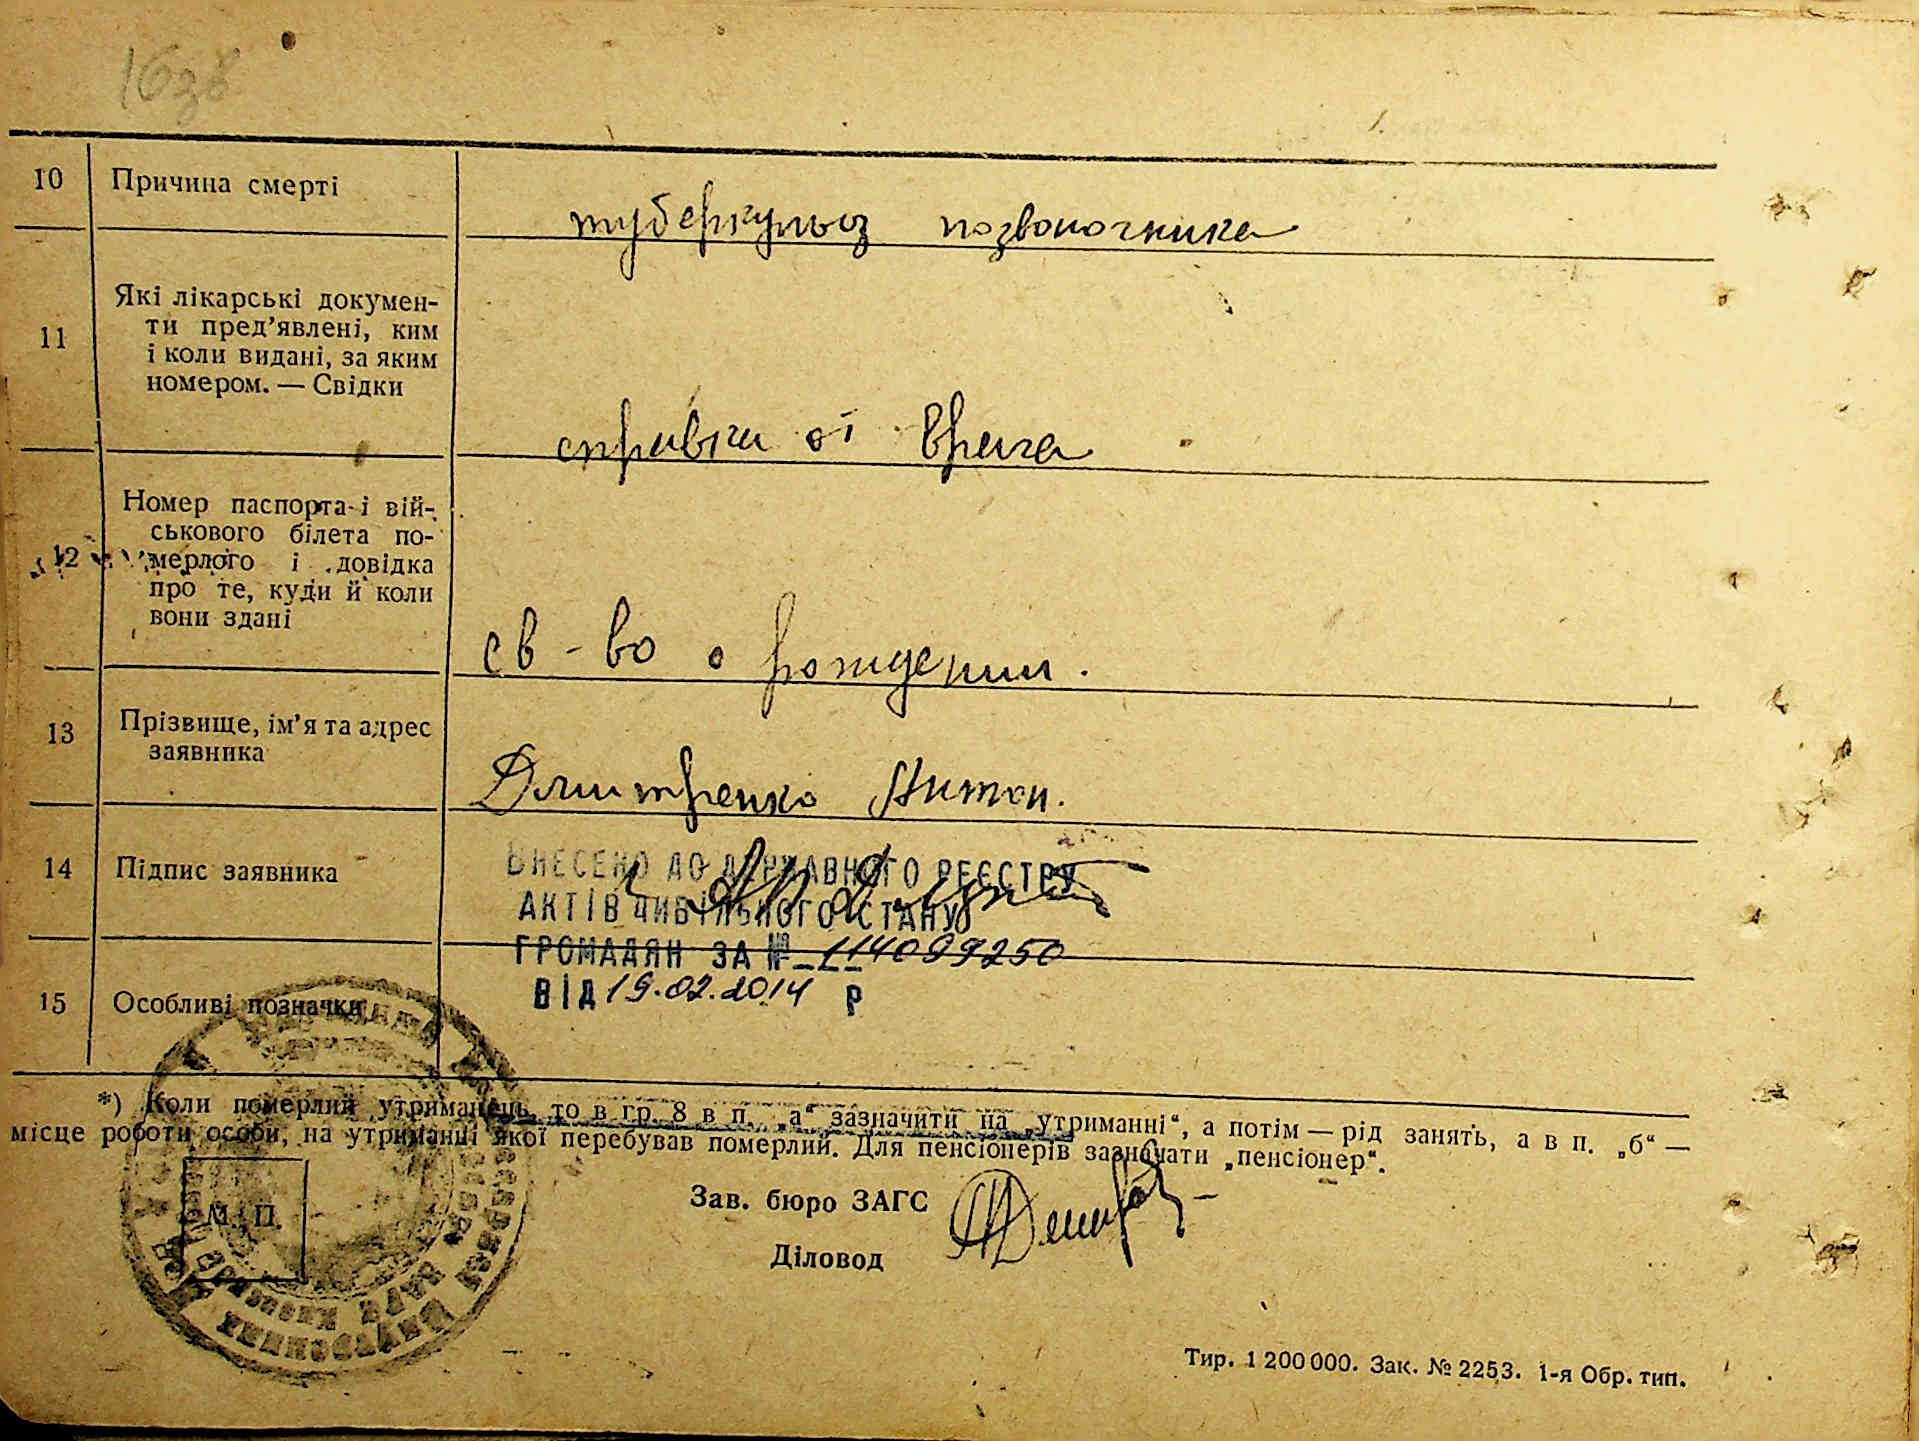 10 Причина смерті туберкульоз позвоночника
11 Які лікарські докумен-
ти пред’явлені, ким
і коли видані, за яким
номером. — Свідки
справка от врача
12 Номер паспорта і вій-
ськового білета по-
мерлого і довідка
про те, куди й коли
вони здані
св-во о рождении.
13 Прізвище, ім’я та адрес
заявника
Дмитренко Антон.
14 Підпис заявника
ВНЕСЕНО ДО ДЕРЖАВНОГО РЕЄСТРУ
АКТІВ ЦИВІЛЬНОГО СТАНУ
ГРОМАДЯН ЗА № 114099250
ВІД 19.02.2014 Р
15 Особливі позначки
*) Коли померлий утриманець, то в гр. 8 в п. „а“ зазначити на „утриманні“, а потім — рід занять, а в п. „б“ —
місце роботи особи, на утриманні якої перебував померлий. Для пенсіонерів зазначати „пенсіонер“.
М. П.
Зав. бюро ЗАГС
Діловод
Тир. 1 200 000. Зак. № 2253. 1-я Обр. тип.